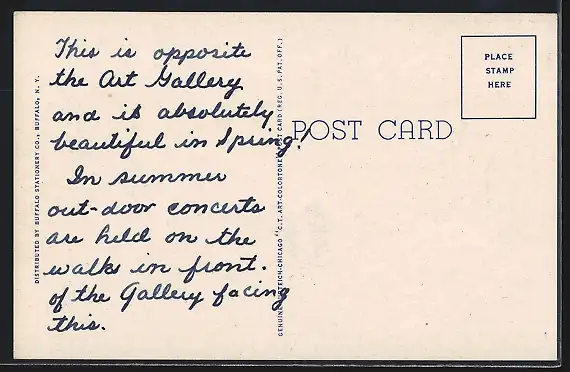 This is opposite
the Art Gallery
and is absolutely
beautiful in Spring!
In summer
out-door concerts
are held on the
walks in front.
of the Gallery facing
this.
DISTRIBUTED BY BUFFALO STATIONERY CO., BUFFALO, N. Y.
GENUINE CURTEICH-CHICAGO "C.T. ART-COLORTONE" POST CARD (REG. U.S. PAT. OFF.)
POST CARD
PLACE
STAMP
HERE